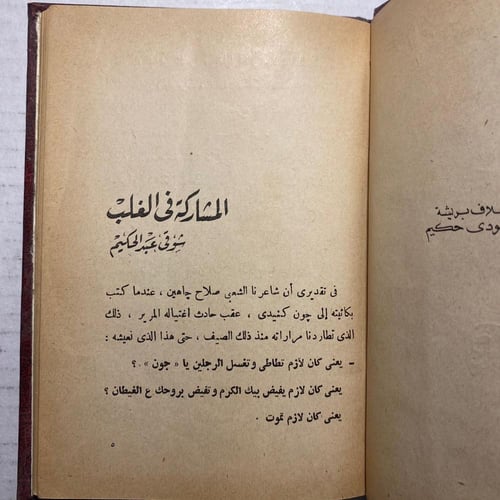 المشاركة فى الغلب
شوقى عبد الحكيم
فى تقديرى أن شاعرنا الشعبى صلاح چاهين ، عندما كتب
بكائيته إلى چون كنيدى ، عقب حادث اغتياله المرير ، ذلك
الذى تطاردنا مراراته منذ ذلك الصيف ، حتى هذا الذى نعيشه :
ـ يعنى كان لازم تطاطى وتغسل الرجلين يا « جون » . ؟
يعنى كان لازم يفيض بيك الكرم وتفيض بروحك ع الغيطان ؟
يعنى كان لازم تموت .
٥
بريشة
حكيم